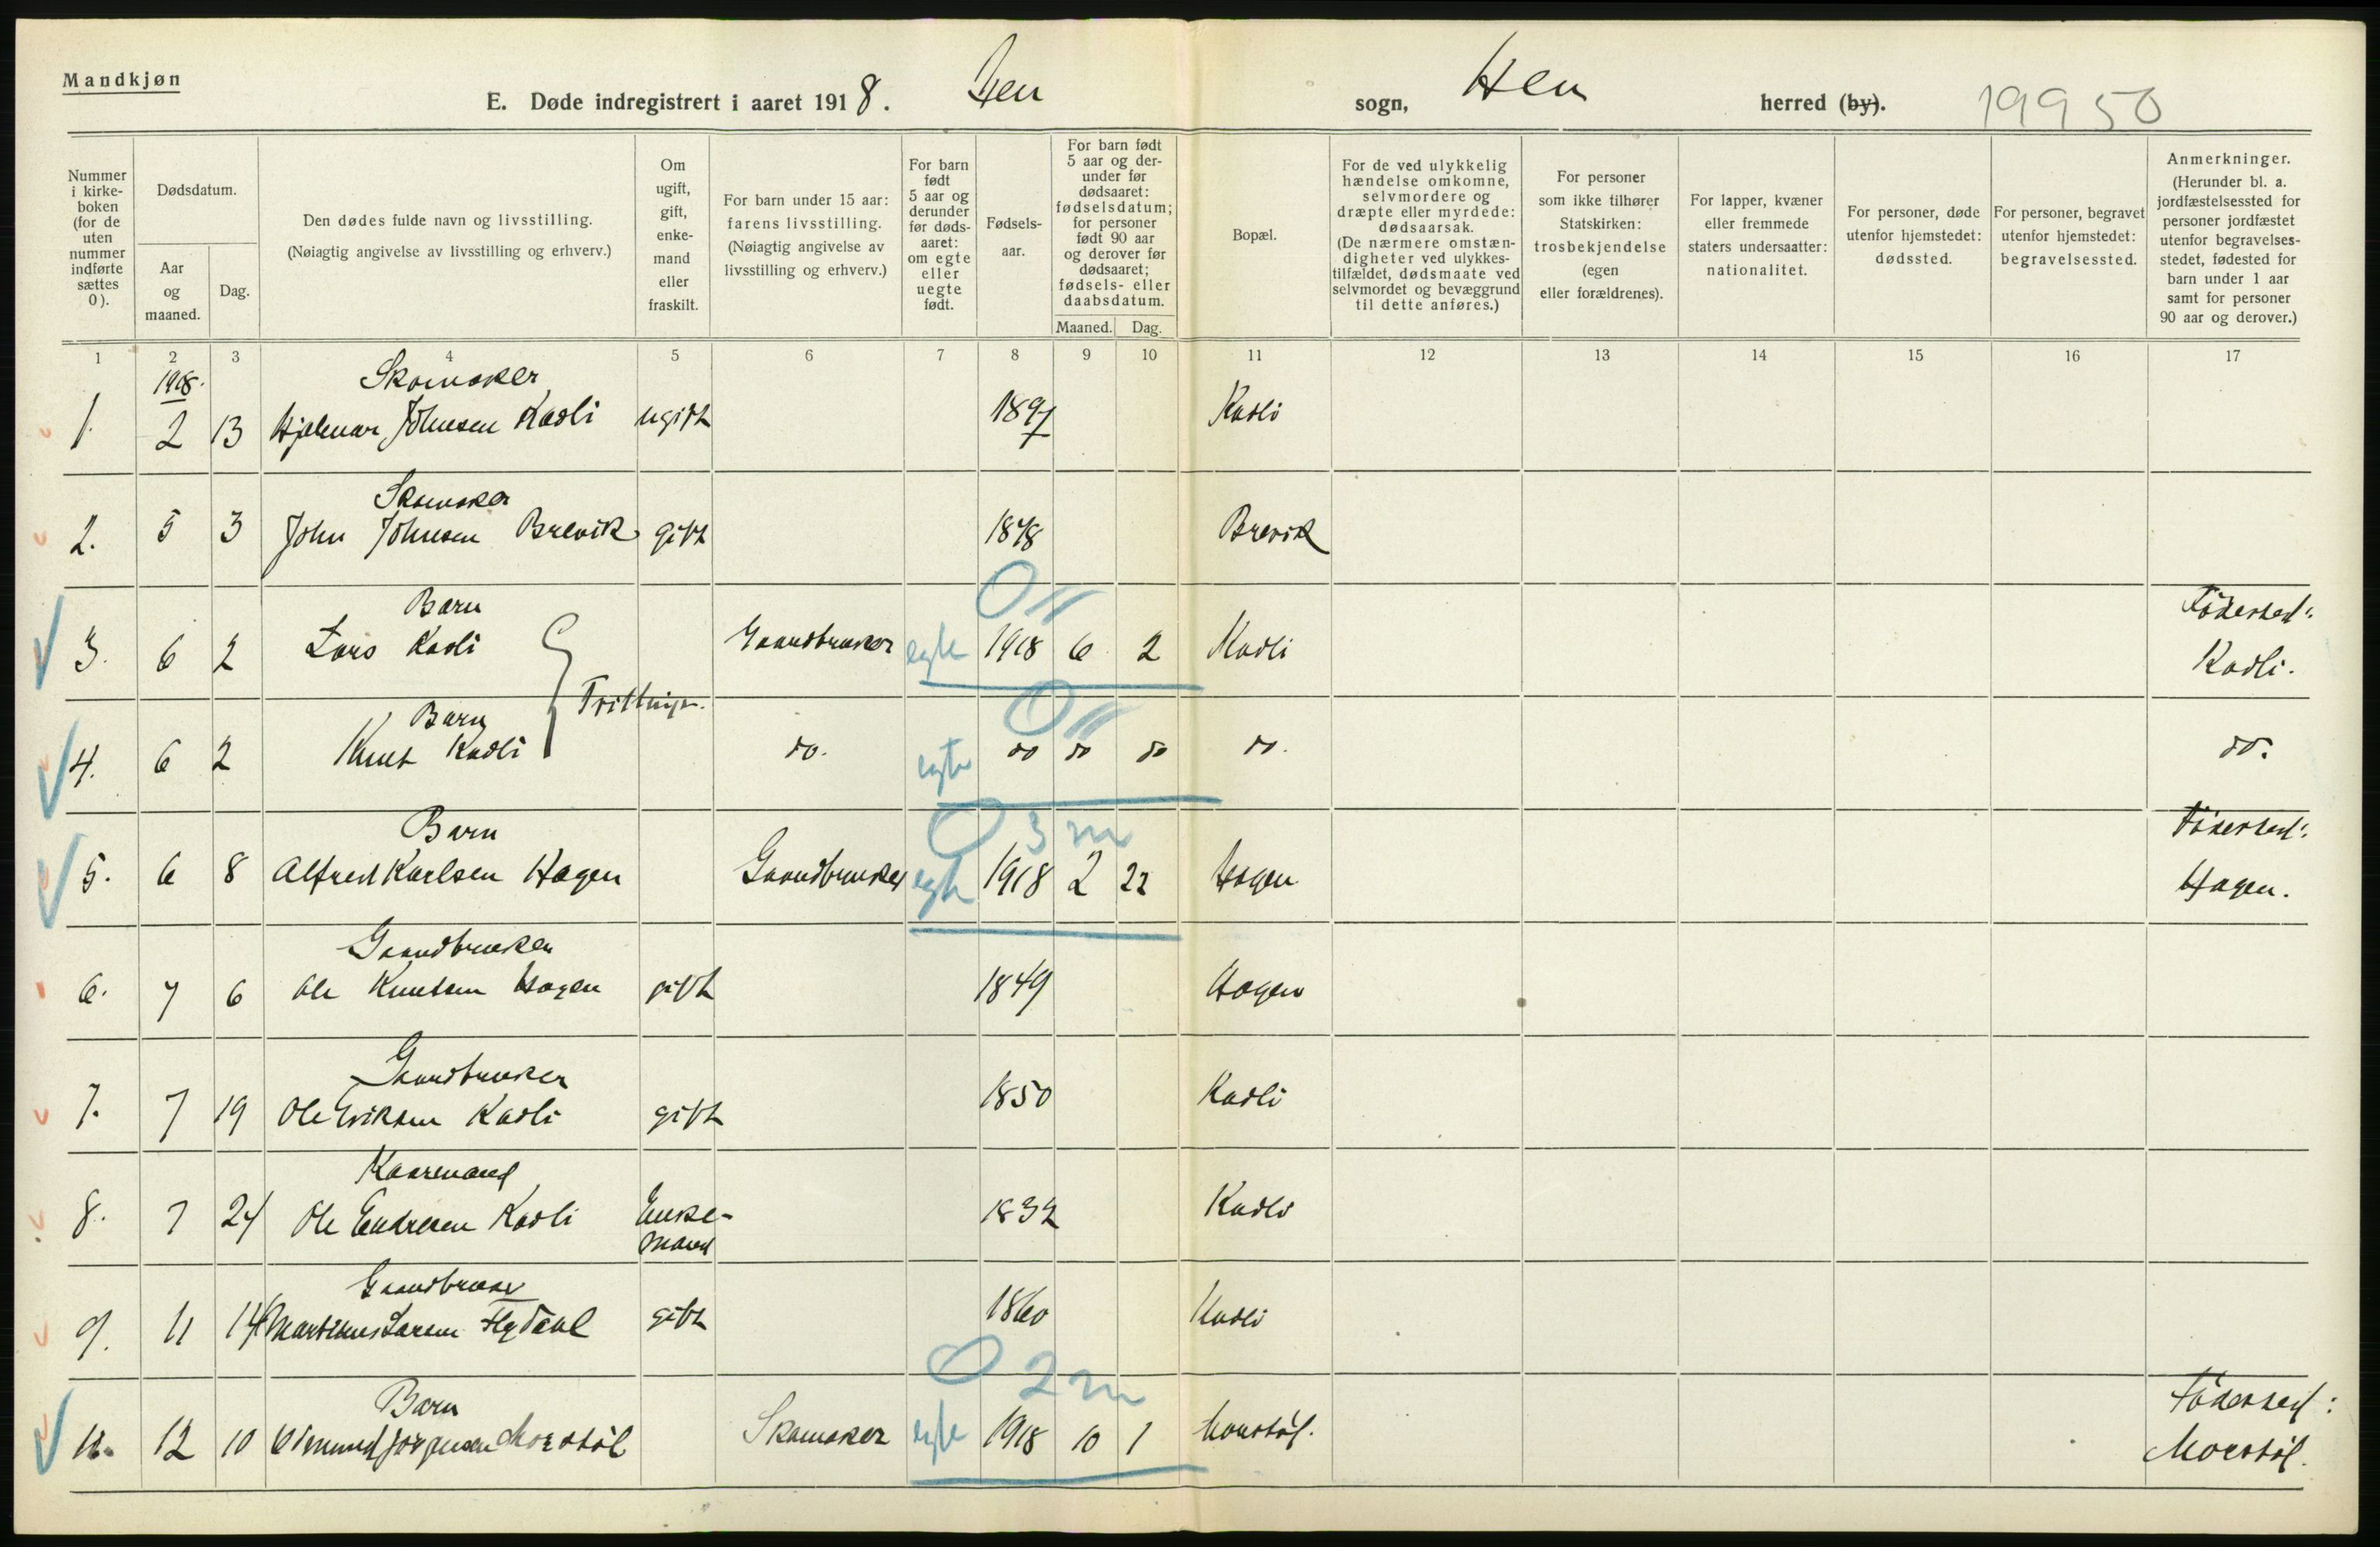 Mandkjøn
E. Døde indregistrert i aaret 1918. Hen sogn, Hen herred (by). 19950
Nummer i kirke-boken (for de uten nummer indførte sættes 0).
Dødsdatum.
Aar og maaned.
Dag.
Den dødes fulde navn og livsstilling.
(Nøiagtig angivelse av livsstilling og erhverv.)
Om ugift, gift, enke-mand eller fraskilt.
For barn under 15 aar: farens livsstilling.
(Nøiagtig angivelse av livsstilling og erhverv.)
For barn født 5 aar og derunder før døds-aaret: om egte eller uegte født.
Fødsels-aar.
For barn født 5 aar og der-under før dødsaaret: fødselsdatum; for personer født 90 aar og derover før dødsaaret; fødsels- eller daabsdatum.
Maaned. Dag.
Bopæl.
For de ved ulykkelig hændelse omkomne, selvmordere og dræpte eller myrdede: dødsaarsak.
(De nærmere omstæn-digheter ved ulykkes-tilfældet, dødsmaate ved selvmordet og bevæggrund til dette anføres.)
For personer som ikke tilhører Statskirken: trosbekjendelse (egen eller forældrenes).
For lapper, kvæner eller fremmede staters undersaatter: nationalitet.
For personer, døde utenfor hjemstedet: dødssted.
For personer, begravet utenfor hjemstedet: begravelsessted.
Anmerkninger.
(Herunder bl. a. jordfæstelsessted for personer jordfæstet utenfor begravelses-stedet, fødested for barn under 1 aar samt for personer 90 aar og derover.)
1 2 3 4 5 6 7 8 9 10 11 12 13 14 15 16 17
1918. Skomaker
1. 2 13 Hjalmar Johnsen Kasli ugift 1897 Kasli
Skomaker
2. 5 3 John Johnsen Brevik gift 1848 Brevik
Barn 0 Födested:
3. 6 2 Lars Kasli Gaardbruker egte 1918 6 2 Kasli Kasli.
Trillinger.
Barn 0
4. 6 2 Knut Kasli do. egte do do do do. do.
Barn 0 3 m Födested:
5. 6 8 Alfred Karlsen Hagen Gaardbruker egte 1918 2 22 Hagen Hagen.
Gaardbruker
6. 7 6 Ole Knutsen Hagen gift 1849 Hagen
Gaardbruker
7. 7 19 Ole Eriksen Kasli gift 1850 Kasli
Kaarmand
8. 7 24 Ole Endresen Kasli Enke-mand 1832 Kasli
Gaardbruker
9. 11 14 Martinus Larsen gift 1860 Kasli
Barn 0 2 m Födested:
10. 12 10 Jörgensen Morstöl Skomaker egte 1918 10 1 Morstöl. Morstöl.